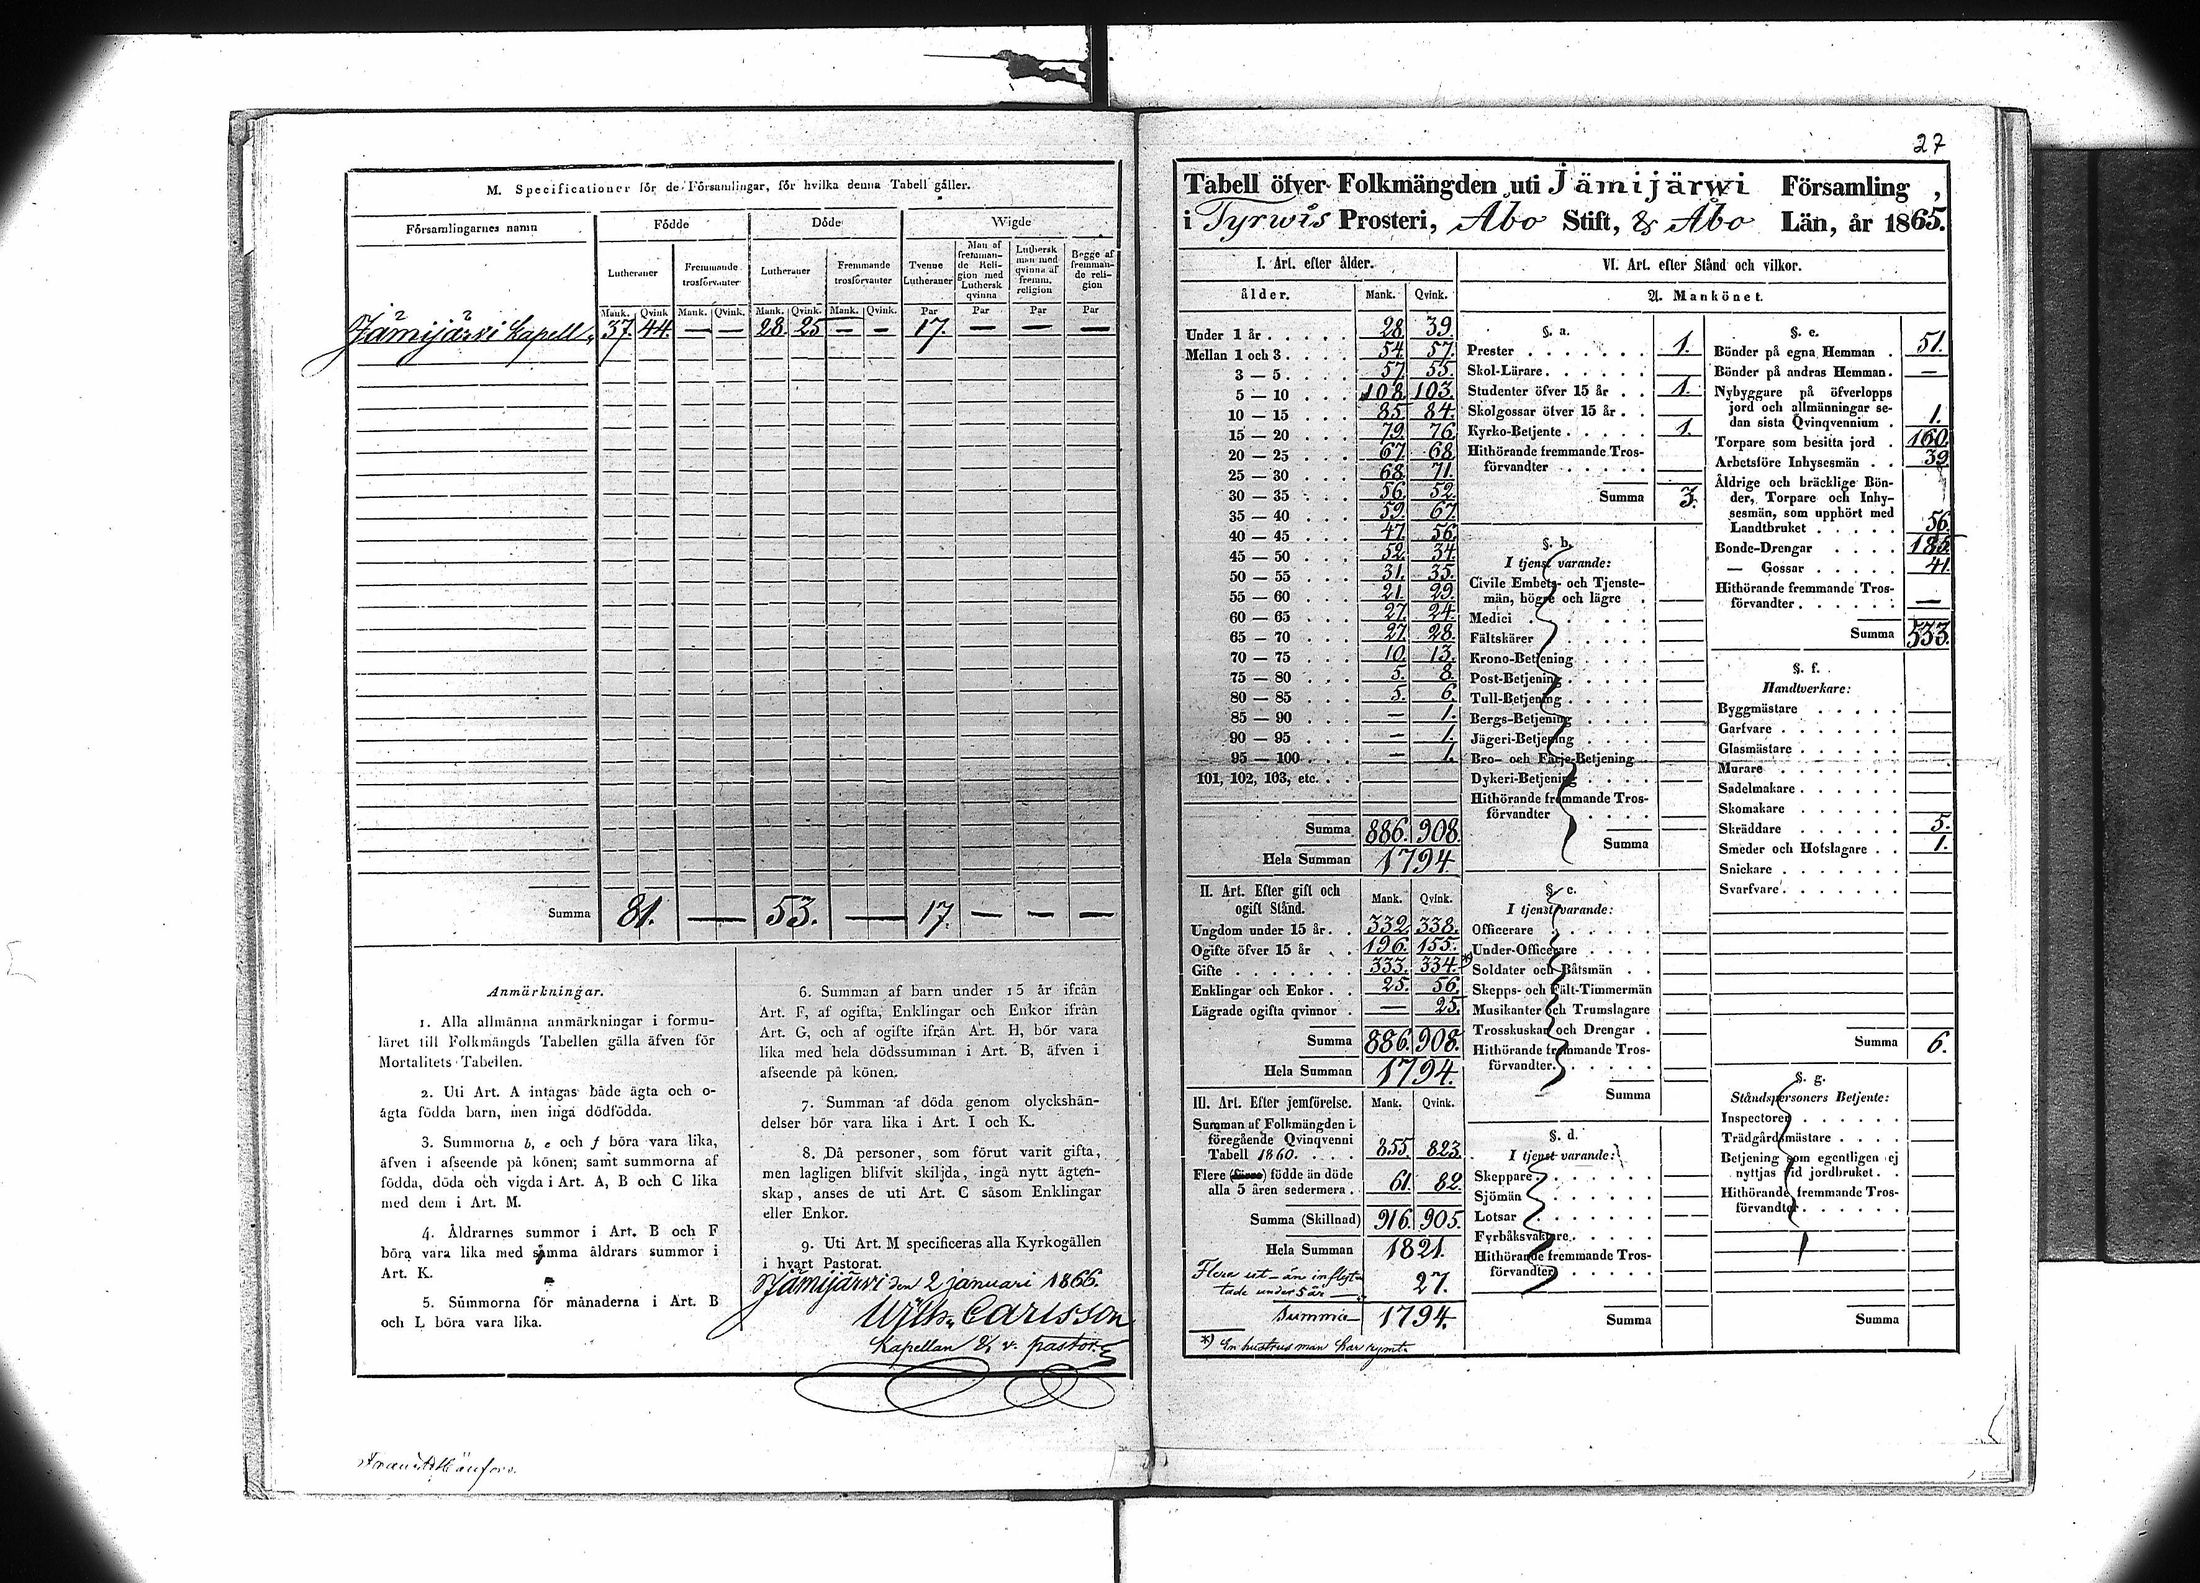 M. Specificationer för de Församlingar, för hvilka denna Tabell gäller.
Församlingarnes namn
Födde
Döde
Wigde
Lutheraner
Fremmande trosförvanter
Lutheraner
Fremmande trosförvanter
Tvenne Lutheraner
Man af fremmande Religion med Luthersk qvinna
Luthersk man med qvinna af fremm. religion
Begge af fremmande religion
Mank. Qvink Mank. Qvink. Mank. Qvink. Mank. Qvink. Par Par Par Par
Jämijärvi Kapell 37. 44. — — 28. 25 — — 17. — — —
Summa 81. — 53. — 17. — — —
Anmärkningar.
1. Alla allmänna anmärkningar i formu-
läret till Folkmängds Tabellen gälla äfven för
Mortalitets Tabellen.
2. Uti Art. A intagas både ägta och o-
ägta födda barn, men inga dödfödda.
3. Summorna b, e och f böra vara lika,
äfven i afseende på könen; samt summorna af
födda, döda och vigda i Art. A, B och C lika
med dem i Art. M.
4. Åldrarnes summor i Art. B och F
böra vara lika med samma åldrars summor i
Art. K.
5. Summorna för månaderna i Art. B
och L böra vara lika.
6. Summan af barn under 15 år ifrån
Art. F, af ogifta, Enklingar och Enkor ifrån
Art. G, och af ogifte ifrån Art. H, bör vara
lika med hela dödssumman i Art. B, äfven i
afseende på könen.
7. Summan af döda genom olyckshän-
delser bör vara lika i Art. I och K.
8. Då personer, som förut varit gifta,
men lagligen blifvit skiljda, ingå nytt ägten-
skap, anses de uti Art. C såsom Enklingar
eller Enkor.
9. Uti Art. M specificeras alla Kyrkogällen
i hvart Pastorat.
Jämijärvi den 2 januari 1866.
Wilh. Carlsson
Kapellan & v. pastor.
27
Tabell öfver Folkmängden uti Jämijärwi Församling,
i Tyrwis Prosteri, Åbo Stift, & Åbo Län, år 1865.
I. Art. efter ålder.
ålder. Mank. Qvink.
Under 1 år 28. 39.
Mellan 1 och 3 54. 57.
3 — 5 57. 55.
5 — 10 108. 103.
10 — 15 85. 84.
15 — 20 79. 76.
20 — 25 67. 68.
25 — 30 68. 71.
30 — 35 56. 52.
35 — 40 59. 67.
40 — 45 47. 56.
45 — 50 52. 34.
50 — 55 31. 35.
55 — 60 21. 29.
60 — 65 27. 24.
65 — 70 27. 28.
70 — 75 10. 13.
75 — 80 5. 8.
80 — 85 5. 6.
85 — 90 — 1.
90 — 95 — 1.
95 — 100 — 1.
101, 102, 103, etc.
Summa 886. 908.
Hela Summan 1794.
II. Art. Efter gift och
ogift Stånd. Mank. Qvink.
Ungdom under 15 år 332. 338.
Ogifte öfver 15 år 196. 155.
Gifte 333. 334. *)
Enklingar och Enkor 25. 56.
Lägrade ogifta qvinnor — 25.
Summa 886. 908.
Hela Summan 1794.
III. Art. Efter jemförelse. Mank. Qvink.
Summan af Folkmängden i
föregående Qvinqvenni
Tabell 1860. 855. 823.
Flere födde än döde
alla 5 åren sedermera 61. 82.
Summa (Skillnad) 916. 905.
Hela Summan 1821.
Flera ut- än inflyt-
tade under 5 år — 27.
Summa 1794.
*) En hustrus man har rymt.
VI. Art. efter Stånd och vilkor.
A. Mankönet.
§. a.
Prester 1.
Skol-Lärare
Studenter öfver 15 år 1.
Skolgossar öfver 15 år
Kyrko-Betjente 1.
Hithörande fremmande Tros-
förvandter
Summa 3.
§. b.
I tjenst varande:
Civile Embets- och Tjenste-
män, högre och lägre
Medici
Fältskärer
Krono-Betjening
Post-Betjening
Tull-Betjening
Bergs-Betjening
Jägeri-Betjening
Bro- och Färje-Betjening
Dykeri-Betjening
Hithörande fremmande Tros-
förvandter
Summa
§. c.
I tjenst varande:
Officerare
Under-Officerare
Soldater och Båtsmän
Skepps- och Fält-Timmermän
Musikanter och Trumslagare
Trosskuskar och Drengar
Hithörande fremmande Tros-
förvandter
Summa
§. d.
I tjenst varande:
Skeppare
Sjömän
Lotsar
Fyrbåksvaktare
Hithörande fremmande Tros-
förvandter
Summa
§. e.
Bönder på egna Hemman 51.
Bönder på andras Hemman —
Nybyggare på öfverlopps
jord och allmänningar se-
dan sista Qvinqvennium 1.
Torpare som besitta jord 160.
Arbetsföre Inhysesmän 39.
Åldrige och bräcklige Bön-
der, Torpare och Inhy-
sesmän, som upphört med
Landtbruket 56.
Bonde-Drengar 185.
— Gossar 41.
Hithörande fremmande Tros-
förvandter —
Summa 533.
§. f.
Handtverkare:
Byggmästare
Garfvare
Glasmästare
Murare
Sadelmakare
Skomakare
Skräddare 5.
Smeder och Hofslagare 1.
Snickare
Svarfvare
Summa 6.
§. g.
Ståndspersoners Betjente:
Inspectorer
Trädgårdsmästare
Betjening som egentligen ej
nyttjas vid jordbruket
Hithörande fremmande Tros-
förvandter
Summa